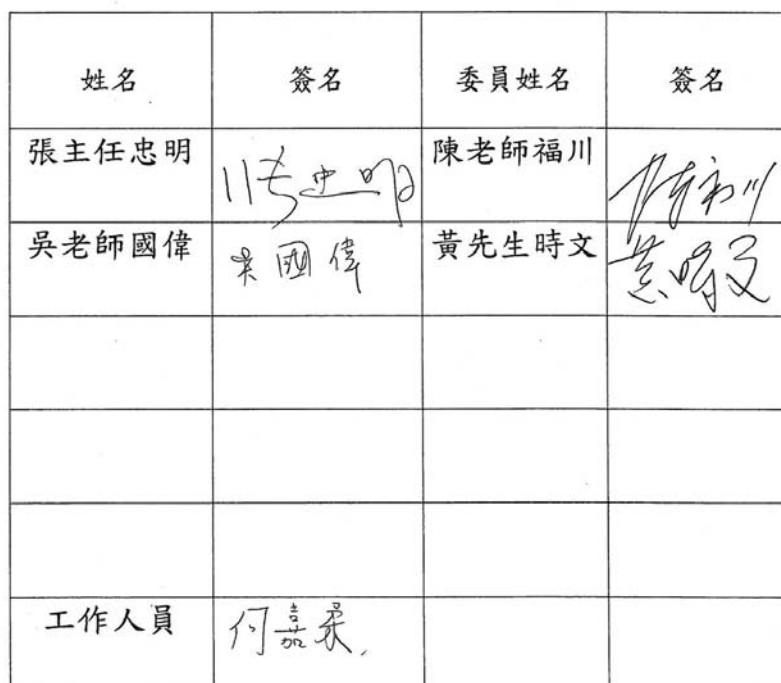 姓名 簽名 委員姓名 簽名
張主任忠明 張忠明 陳老師福川 陳福川
吳老師國偉 吳國偉 黃先生時文 黃時文
工作人員 何嘉柔